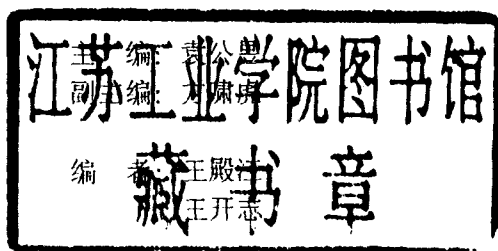 江苏工业学院图书馆
藏书章
主 编: 袁公
副主编: 方啸虎
编 者 王殿江
王开志